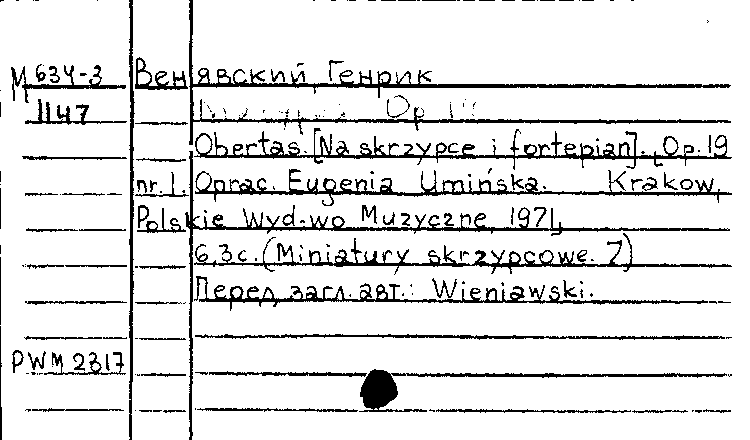 М 634-3 Венявский, Генрик
1147 Op
Obertas. [Na skrzypce i fortepian]. Op. 19
nr. 1. Oprac. Eugenia Umińska. Krakow,
Polskie Wyd-wo Muzyczne, 1971,
6,3 с. (Miniatury skrzypcowe. 7)
Перед загл. авт.: Wieniawski.
PWM 2317